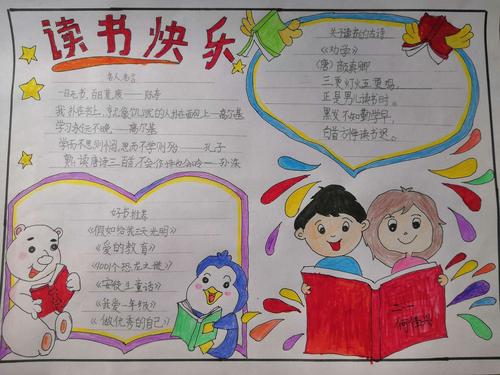 读书快乐
名人名言
一日无书，百事荒废——陈寿
我扑在书上，就像饥饿的人扑在面包上—高尔基
学习永远不晚。——高尔基
学而不思则惘，思而不学则殆——孔子
熟读唐诗三百首不会作诗也会吟——孙洙
好书推荐
《假如给我三天光明》
《爱的教育》
《1001个恐龙之谜》
《安徒生童话》
《我爱一年级》
《做优秀的自己》
关于读书的古诗
《劝学》
(唐) 颜真卿
三更灯火五更鸡，
正是男儿读书时。
黑发不知勤学早，
白首方悔读书迟。
二一